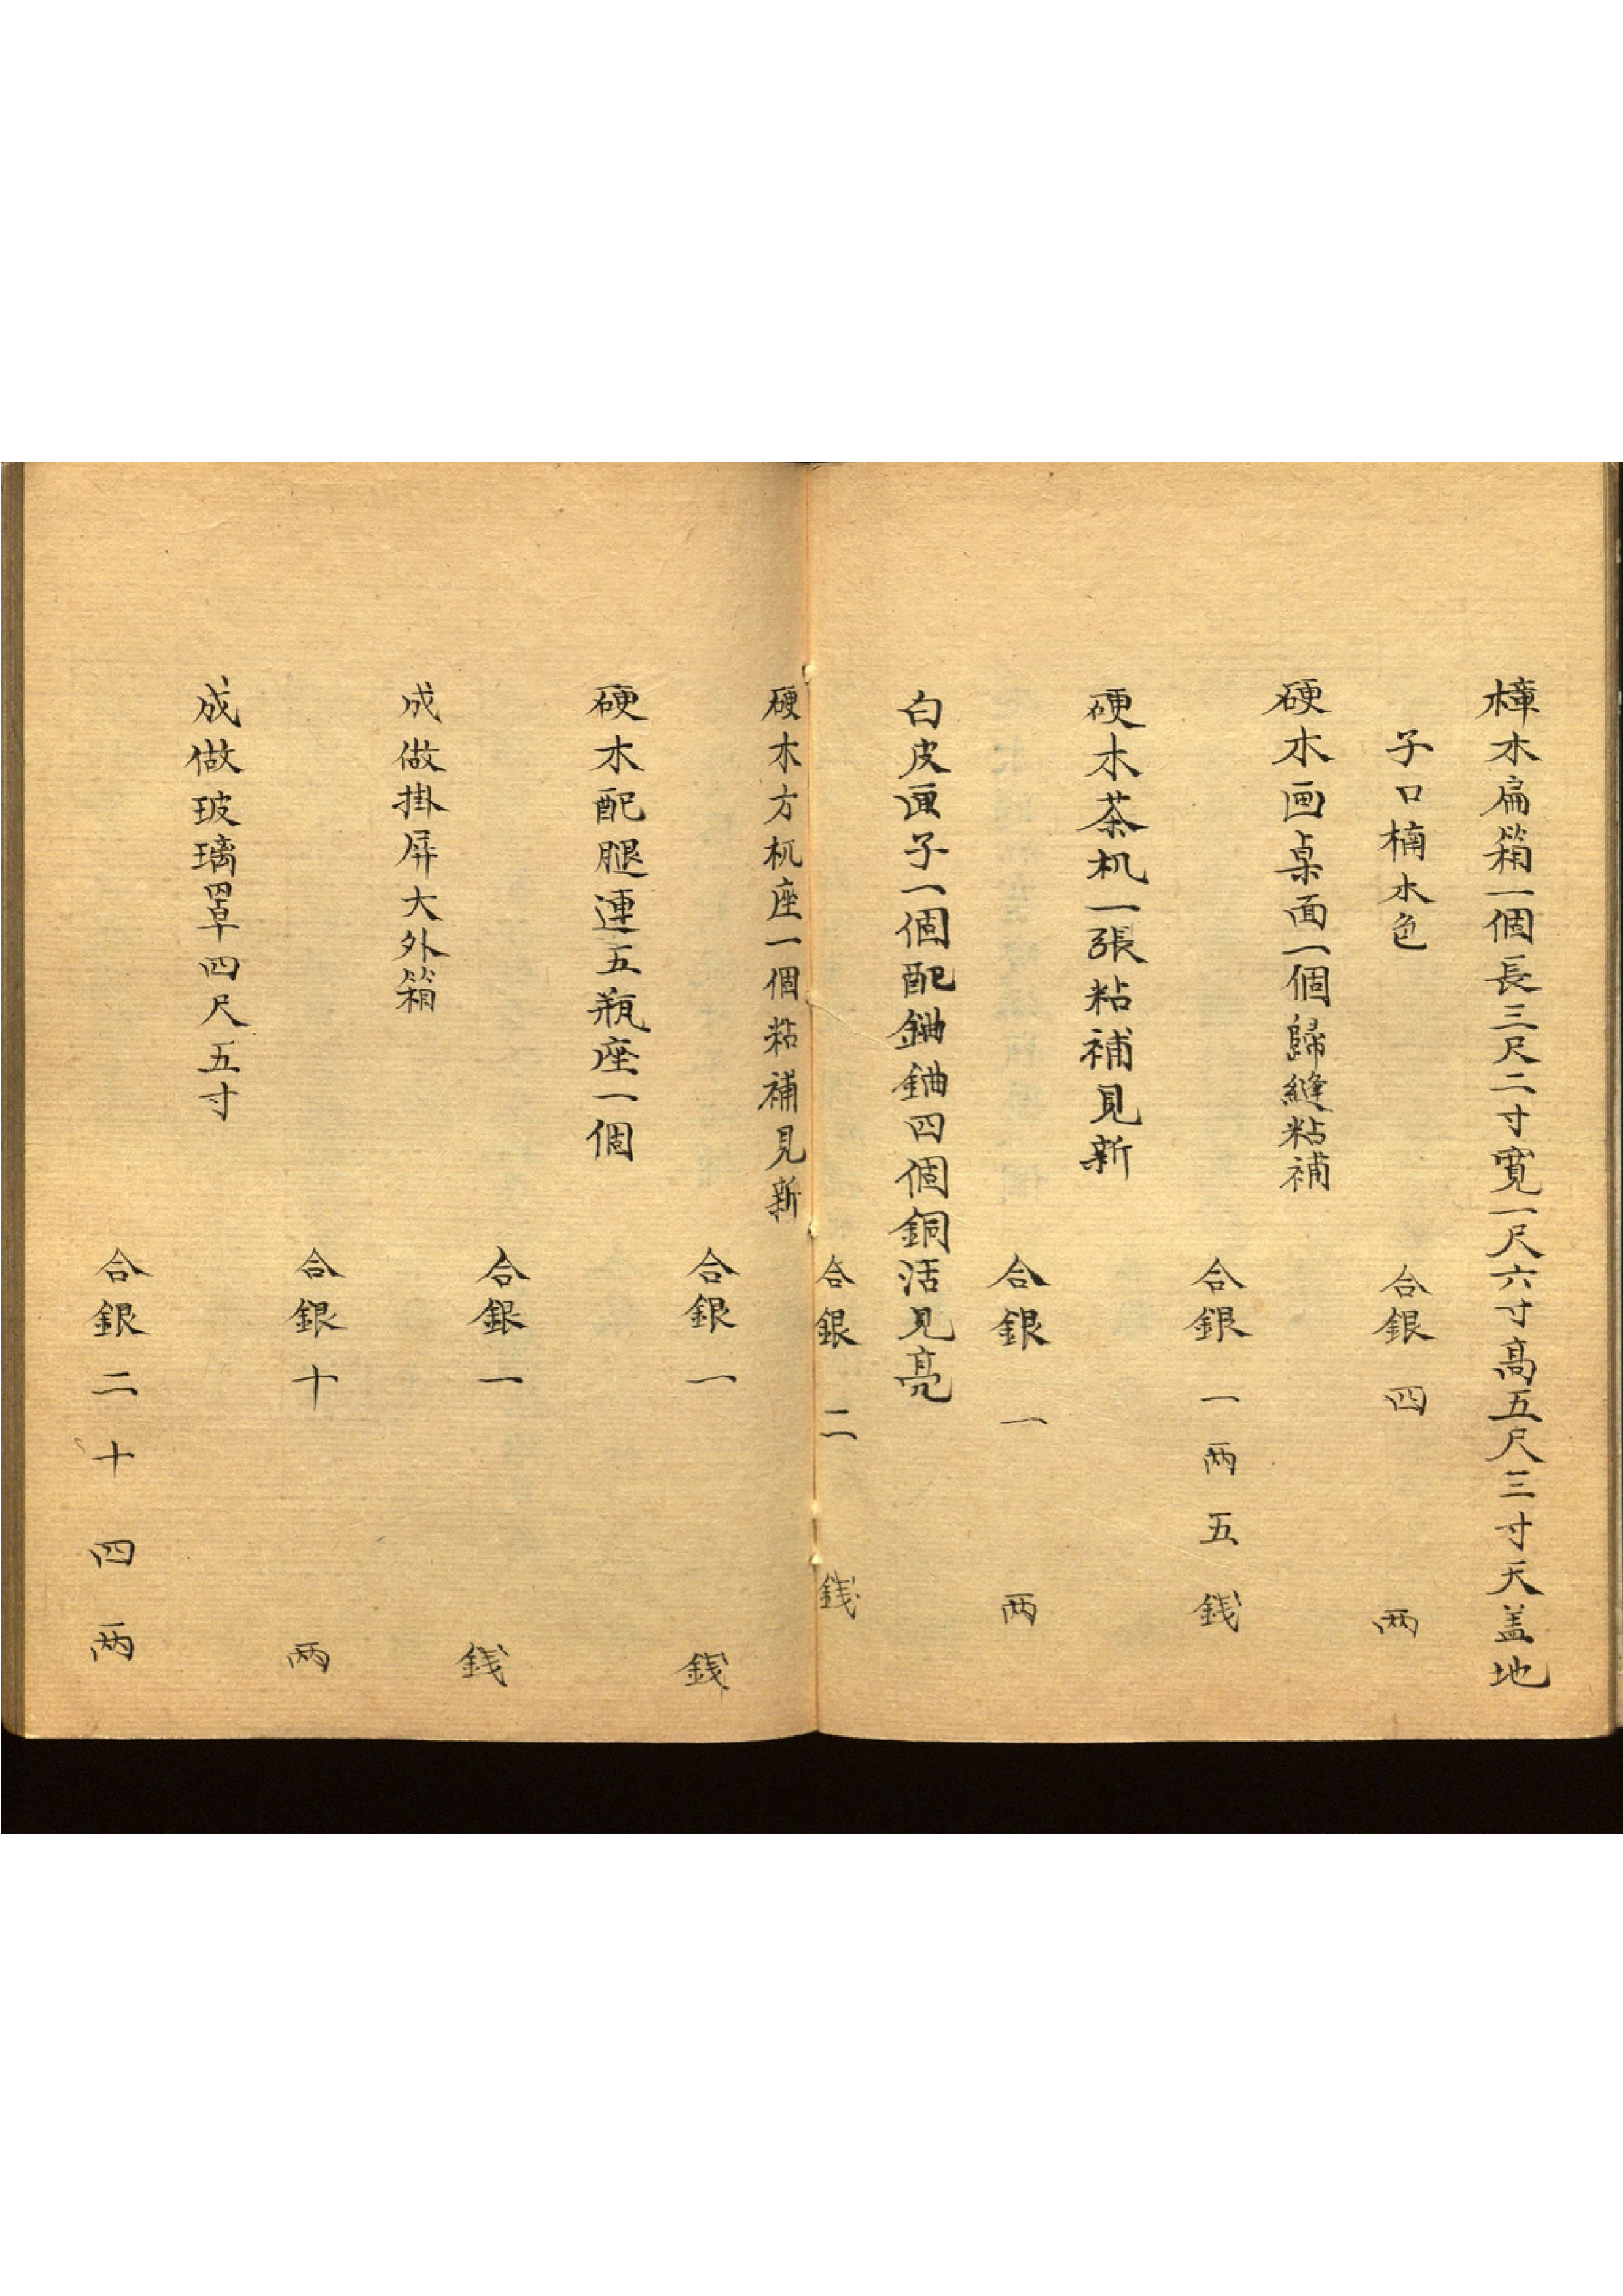 樟木扁箱一個長三尺二寸寬一尺六寸高五尺三寸天盖地
子口楠木色
合銀四两
硬木画桌面一個歸縫粘補
合銀一两五銭
硬木茶机一張粘補見新
合銀一两
白皮匣子一個配鈾鈾四個銅活見亮
合銀二銭
硬木方机座一個粘補見新
合銀一銭
硬木配腿連五瓶座一個
合銀一銭
成做掛屏大外箱
合銀十两
成做玻璃罩四尺五寸
合銀二十四两